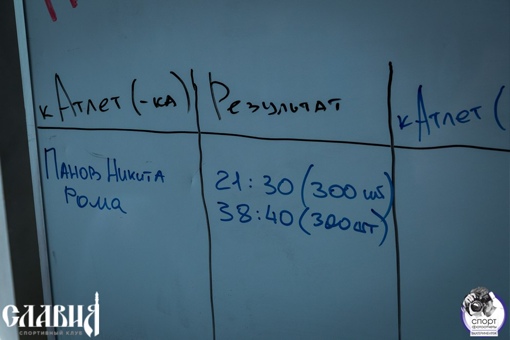 кАтлет (-ка) Результат кАтлет (
Панов Никита 21:30 (300 шт)
Рома 38:40 (300 шт)
СЛАВИЯ
СПОРТИВНЫЙ КЛУБ
спорт